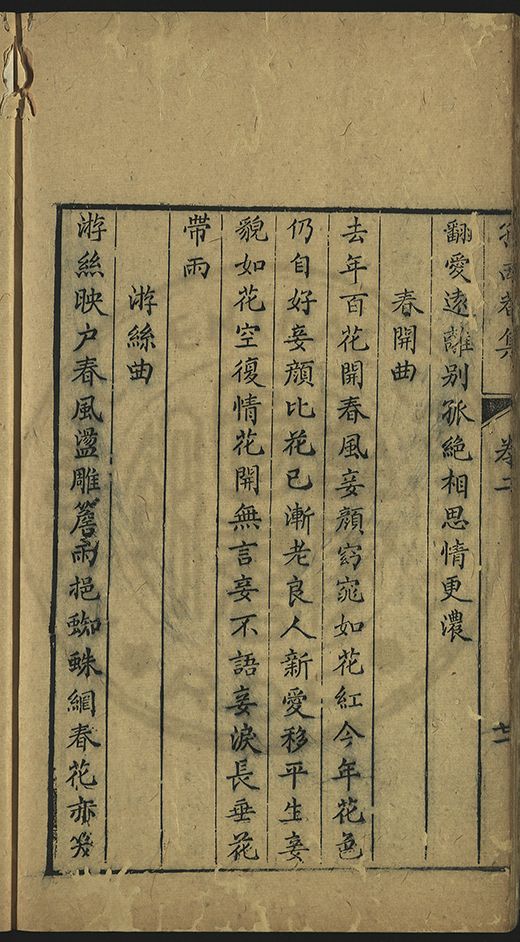 卷二
翻愛遠離别孤絶相思情更濃
春開曲
去年百花開春風妾顔窈窕如花紅今年花色
仍自好妾顔比花已漸老良人新愛移平生妾
貌如花空復情花開無言妾不語妾淚長垂花
帶雨
游絲曲
游絲映户春風盪雕簷雨挹蜘蛛網春花亦笑